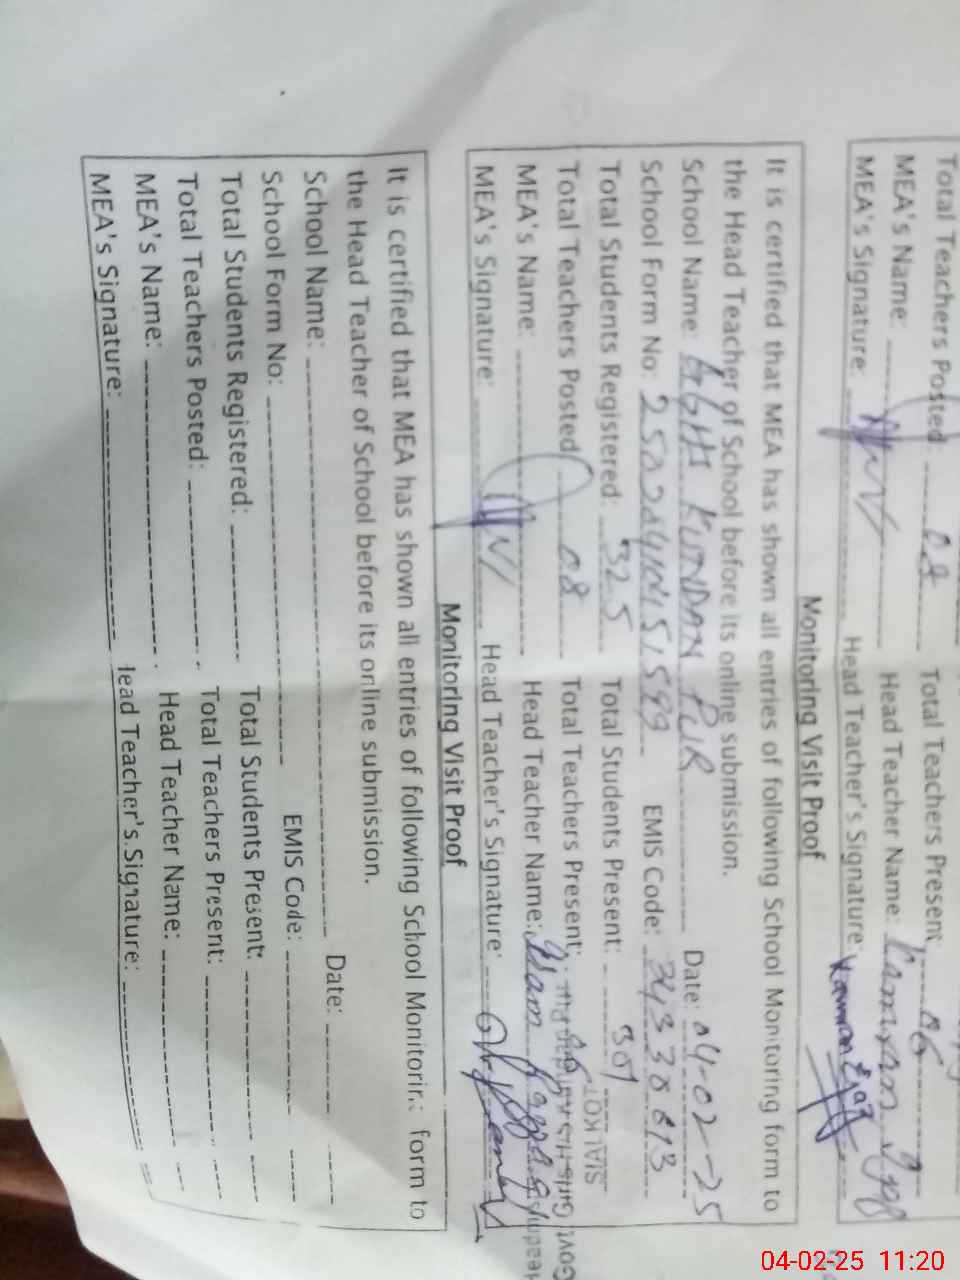 Total Teachers Posted: 08 Total Teachers Present: 06
MEA's Name: Head Teacher Name: Kamran
MEA's Signature: Head Teacher's Signature: Kamran
Monitoring Visit Proof
It is certified that MEA has shown all entries of following School Monitoring form to
the Head Teacher of School before its online submission.
School Name: GGHS KUNDAN PUR Date: 04-02-25
School Form No: EMIS Code:
Total Students Registered: 325 Total Students Present: 301
Total Teachers Posted 08 Total Teachers Present:
MEA's Name: Head Teacher Name:
MEA's Signature: Head Teacher's Signature:
SIALKOT
Govt
Monitoring Visit Proof
It is certified that MEA has shown all entries of following School Monitorin: form to
the Head Teacher of School before its online submission.
School Name: Date:
School Form No: EMIS Code:
Total Students Registered: Total Students Present:
Total Teachers Posted: Total Teachers Present:
MEA's Name: Head Teacher Name:
MEA's Signature: Head Teacher's Signature:
04-02-25 11:20